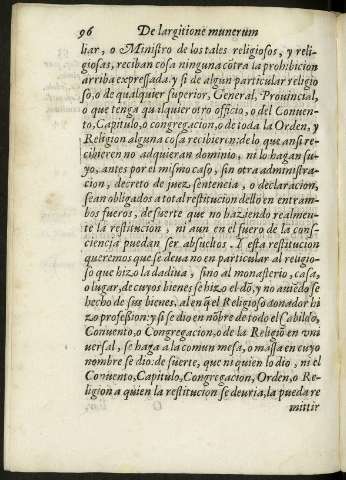 96 De largitione munerum
liar, o Ministro de los tales religiosos, y reli-
giosas, reciban cosa ninguna cõtra la prohibicion
arriba expressada. y si de algun particular religio
so, o de qualquier superior, General, Provincial,
o que tenga qualquier otro officio, o del Conuen-
to, Capitulo, o congregacion, o de toda la Orden, y
Religion alguna cosa recibieren: de lo que ansi re-
cibieren no adquieran dominio, ni lo hagan su-
yo, antes por el mismo caso, sin otra administra-
cion, decreto de juez, sentencia, o declaracion,
sean obligados a total restitucion dello en entram-
bos fueros, de suerte que no haziendo realmen-
te la restitucion, ni aun en el fuero de la cons-
ciencia puedan ser absueltos. Y esta restitucion
queremos que se deua no en particular al religio-
so que hizo la dadiua, sino al monasterio, casa,
o lugar, de cuyos bienes se hizo el dõ, y no auiẽdo se
hecho de sus bienes, al en q̃ el Religioso donador hi
zo profession: y si se dio en nõbre de todo el Cabildo,
Conuento, o Congregacion, o de la Religiõ en vni
uersal, se haga a la comun mesa, o massa en cuyo
nombre se dio: de suerte, que ni quien lo dio, ni el
Conuento, Capitulo, Congregacion, Orden, o Re-
ligion a quien la restitucion se deuria, la pueda re
mitir